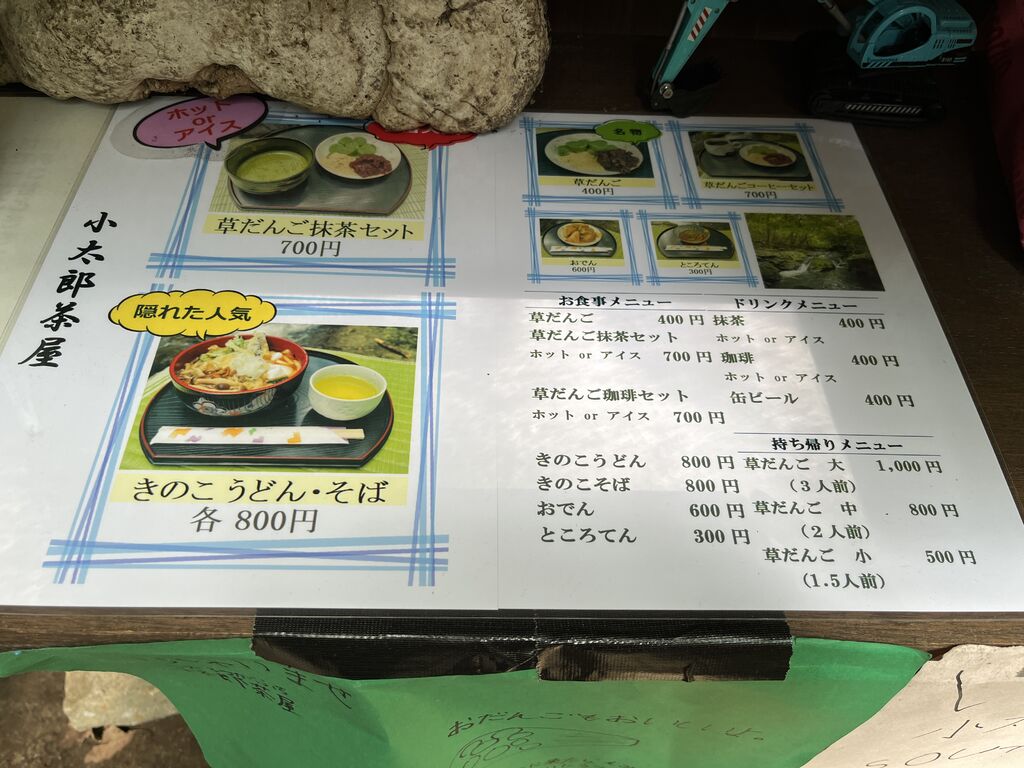 ホット
or
アイス
草だんご抹茶セット
700円
小太郎茶屋
隠れた人気
きのこうどん・そば
各 800円
名物
草だんご
400円
草だんごコーヒーセット
700円
おでん
600円
ところてん
300円
お食事メニュー
草だんご 400円
草だんご抹茶セット
ホット or アイス 700円
草だんご珈琲セット
ホット or アイス 700円
きのこうどん 800円
きのこそば 800円
おでん 600円
ところてん 300円
ドリンクメニュー
抹茶 400円
ホット or アイス
珈琲 400円
ホット or アイス
缶ビール 400円
持ち帰りメニュー
草だんご 大 1,000円
(3人前)
草だんご 中 800円
(2人前)
草だんご 小 500円
(1.5人前)
茶屋
おだんごもおいしいよ。